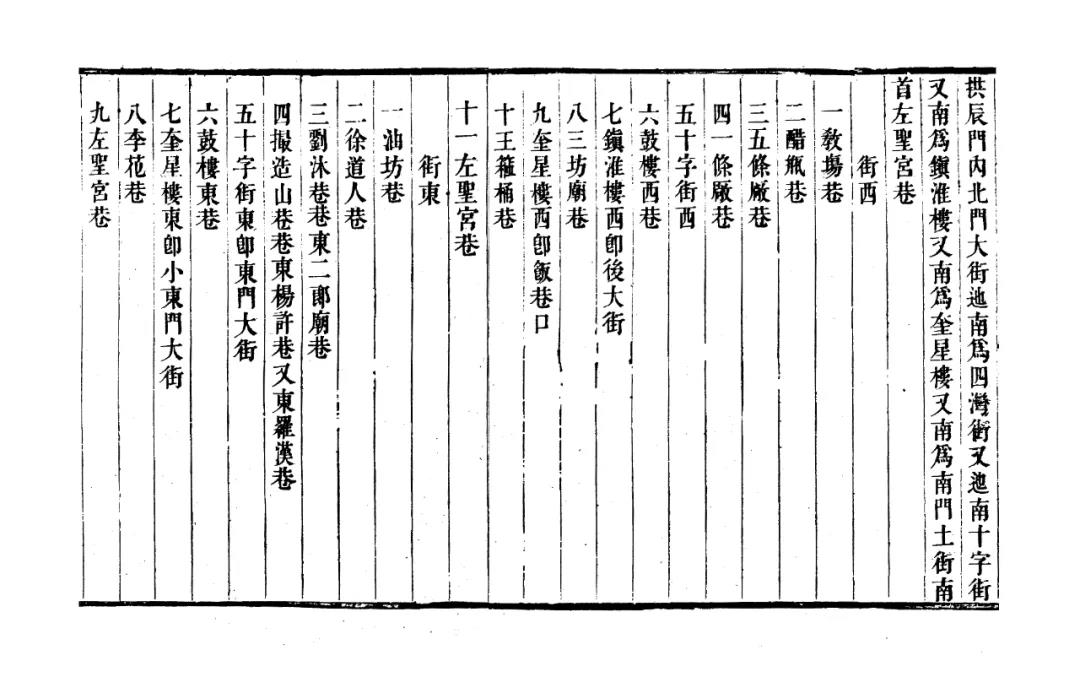 拱辰門內北門大街迤南爲四灣街又迤南十字街
又南爲鎮淮樓又南爲奎星樓又南爲南門土街南
首左聖宮巷
街西
一教場巷
二醋瓶巷
三五條廠巷
四一條廠巷
五十字街西
六鼓樓西巷
七鎮淮樓西卽後大街
八三坊廟巷
九奎星樓西卽飯巷口
十王箍桶巷
十一左聖宮巷
街東
一油坊巷
二徐道人巷
三劉沐巷巷東二郎廟巷
四撮造山巷巷東楊許巷又東羅漢巷
五十字街東卽東門大街
六鼓樓東巷
七奎星樓東卽小東門大街
八李花巷
九左聖宮巷